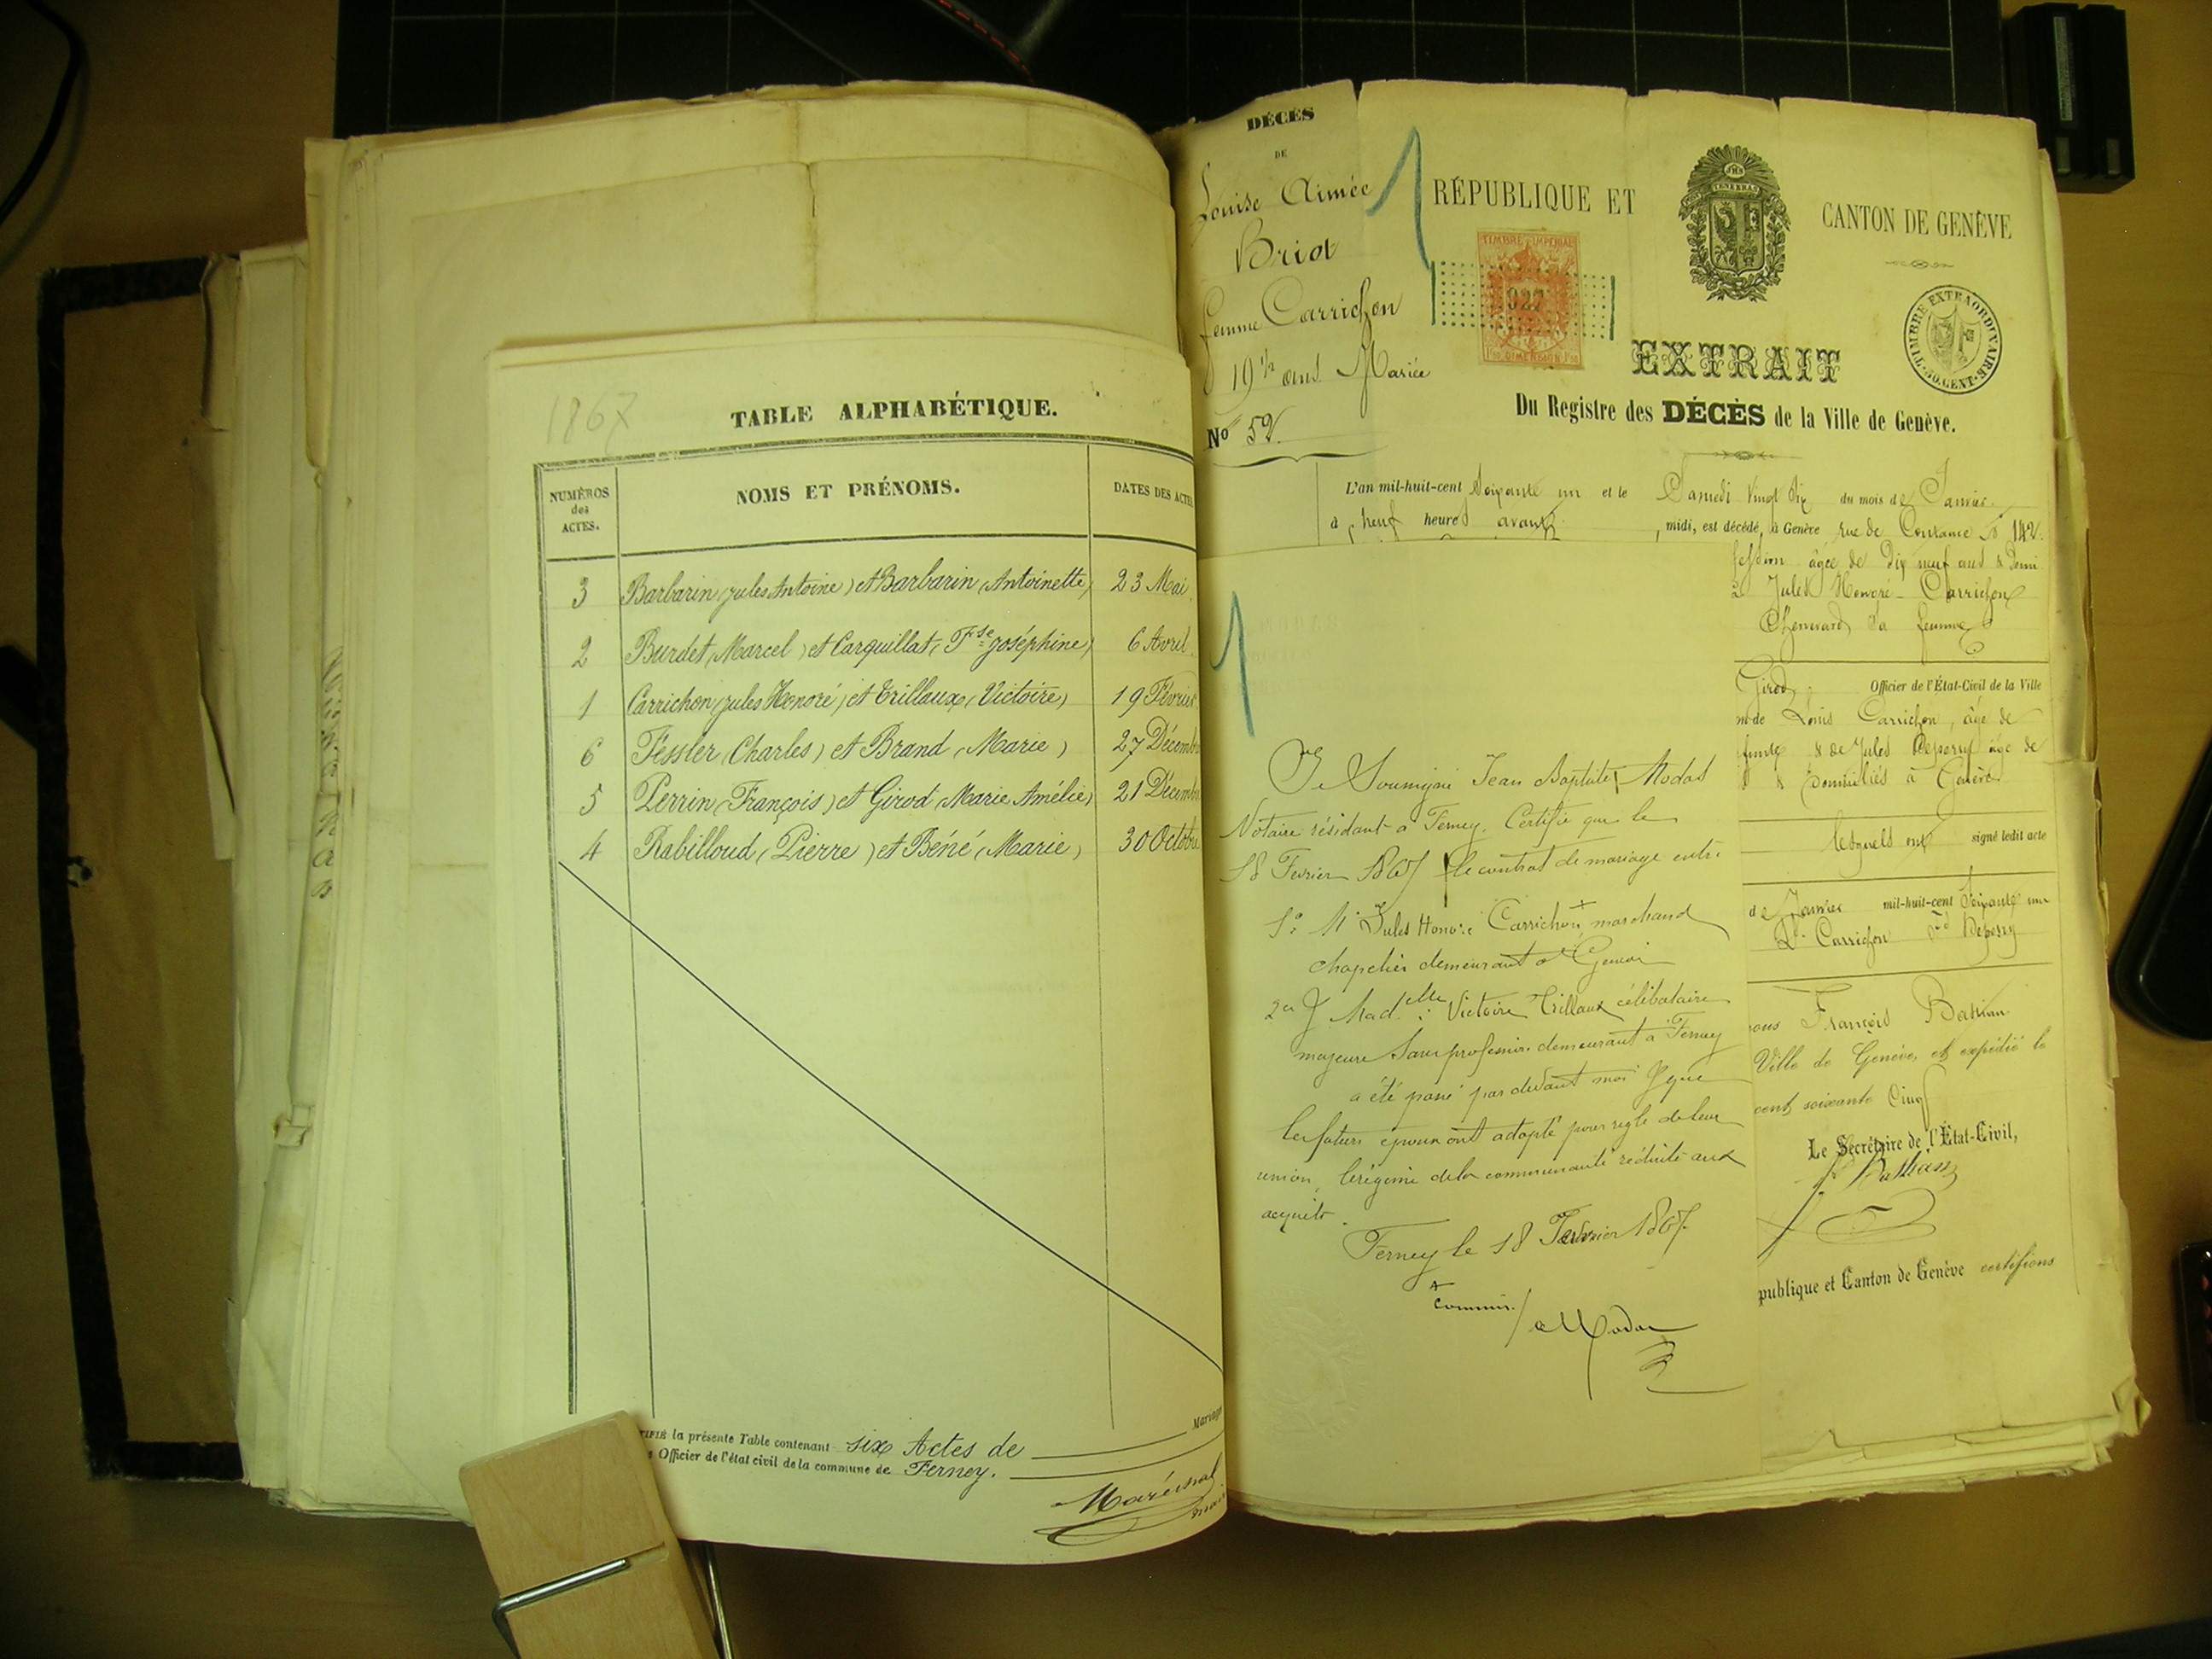 1867
TABLE ALPHABÉTIQUE.
NUMÉROS des ACTES.
NOMS ET PRÉNOMS.
DATES DES ACTES
3 Barbarin (Jules Antoine) et Barbarin (Antoinette) 23 Mai
2 Burdet (Marcel) et Carquillat (Fse Joséphine) 6 Avril
1 Carrichon (Jules Honoré) et Trillaux (Victoire) 19 Février
6 Fessler (Charles) et Brand (Marie) 27 Décemb
5 Perrin (François) et Girod (Marie Amélie) 21 Décemb
4 Rabilloud (Pierre) et Béné (Marie) 30 Octobre
TIFIÉ la présente Table contenant six Actes de Mariage
Officier de l'état civil de la commune de Ferney.
Maréchal
maire
DÉCÈS
DE
Louise Aimée
Briot
femme Carrichon
19 1/2 ans Mariée
No 52
RÉPUBLIQUE ET CANTON DE GENÈVE
TIMBRE IMPÉRIAL
927
DIMENSION
TIMBRE EXTRAORDINAIRE
50. CENT.
EXTRAIT
Du Registre des DÉCÈS de la Ville de Genève.
L'an mil-huit-cent Soixante un et le Samedi Vingt Six du mois de Janvier
à neuf heures avant midi, est décédé, à Genève rue de Coutance No 142.
âgée de Dix neuf ans & Demi
Jules Honoré Carrichon
Chenevard sa femme
Girod Officier de l'État-Civil de la Ville
de Louis Carrichon, âgé de
& de Jules Depéry âgé de
& Domiciliés à Genève
lesquels ont signé ledit acte
de Janvier mil-huit-cent Soixante un
Ls Carrichon Depery
nous François Bastian
Ville de Genève, et expédié le
cent soixante Cinq
Le Secrétaire de l'État-Civil,
F. Bastian
publique et Canton de Genève certifions
Je Soussigné Jean Baptiste Modas
Notaire résidant à Ferney. Certifie que le
18 Fevrier 1867 le contrat de mariage entre
1o Mr Jules Honoré Carrichon marchand
chapelier demeurant à Genève
2o & Madelle Victoire Trillaux célibataire
majeure Sans profession demeurant à Ferney
a été passé par devant moi & que
les futurs époux ont adopté pour règle de leur
union, le régime de la communauté réduite aux
acquêts.
Ferney le 18 Fevrier 1867
+ commis.
Modas